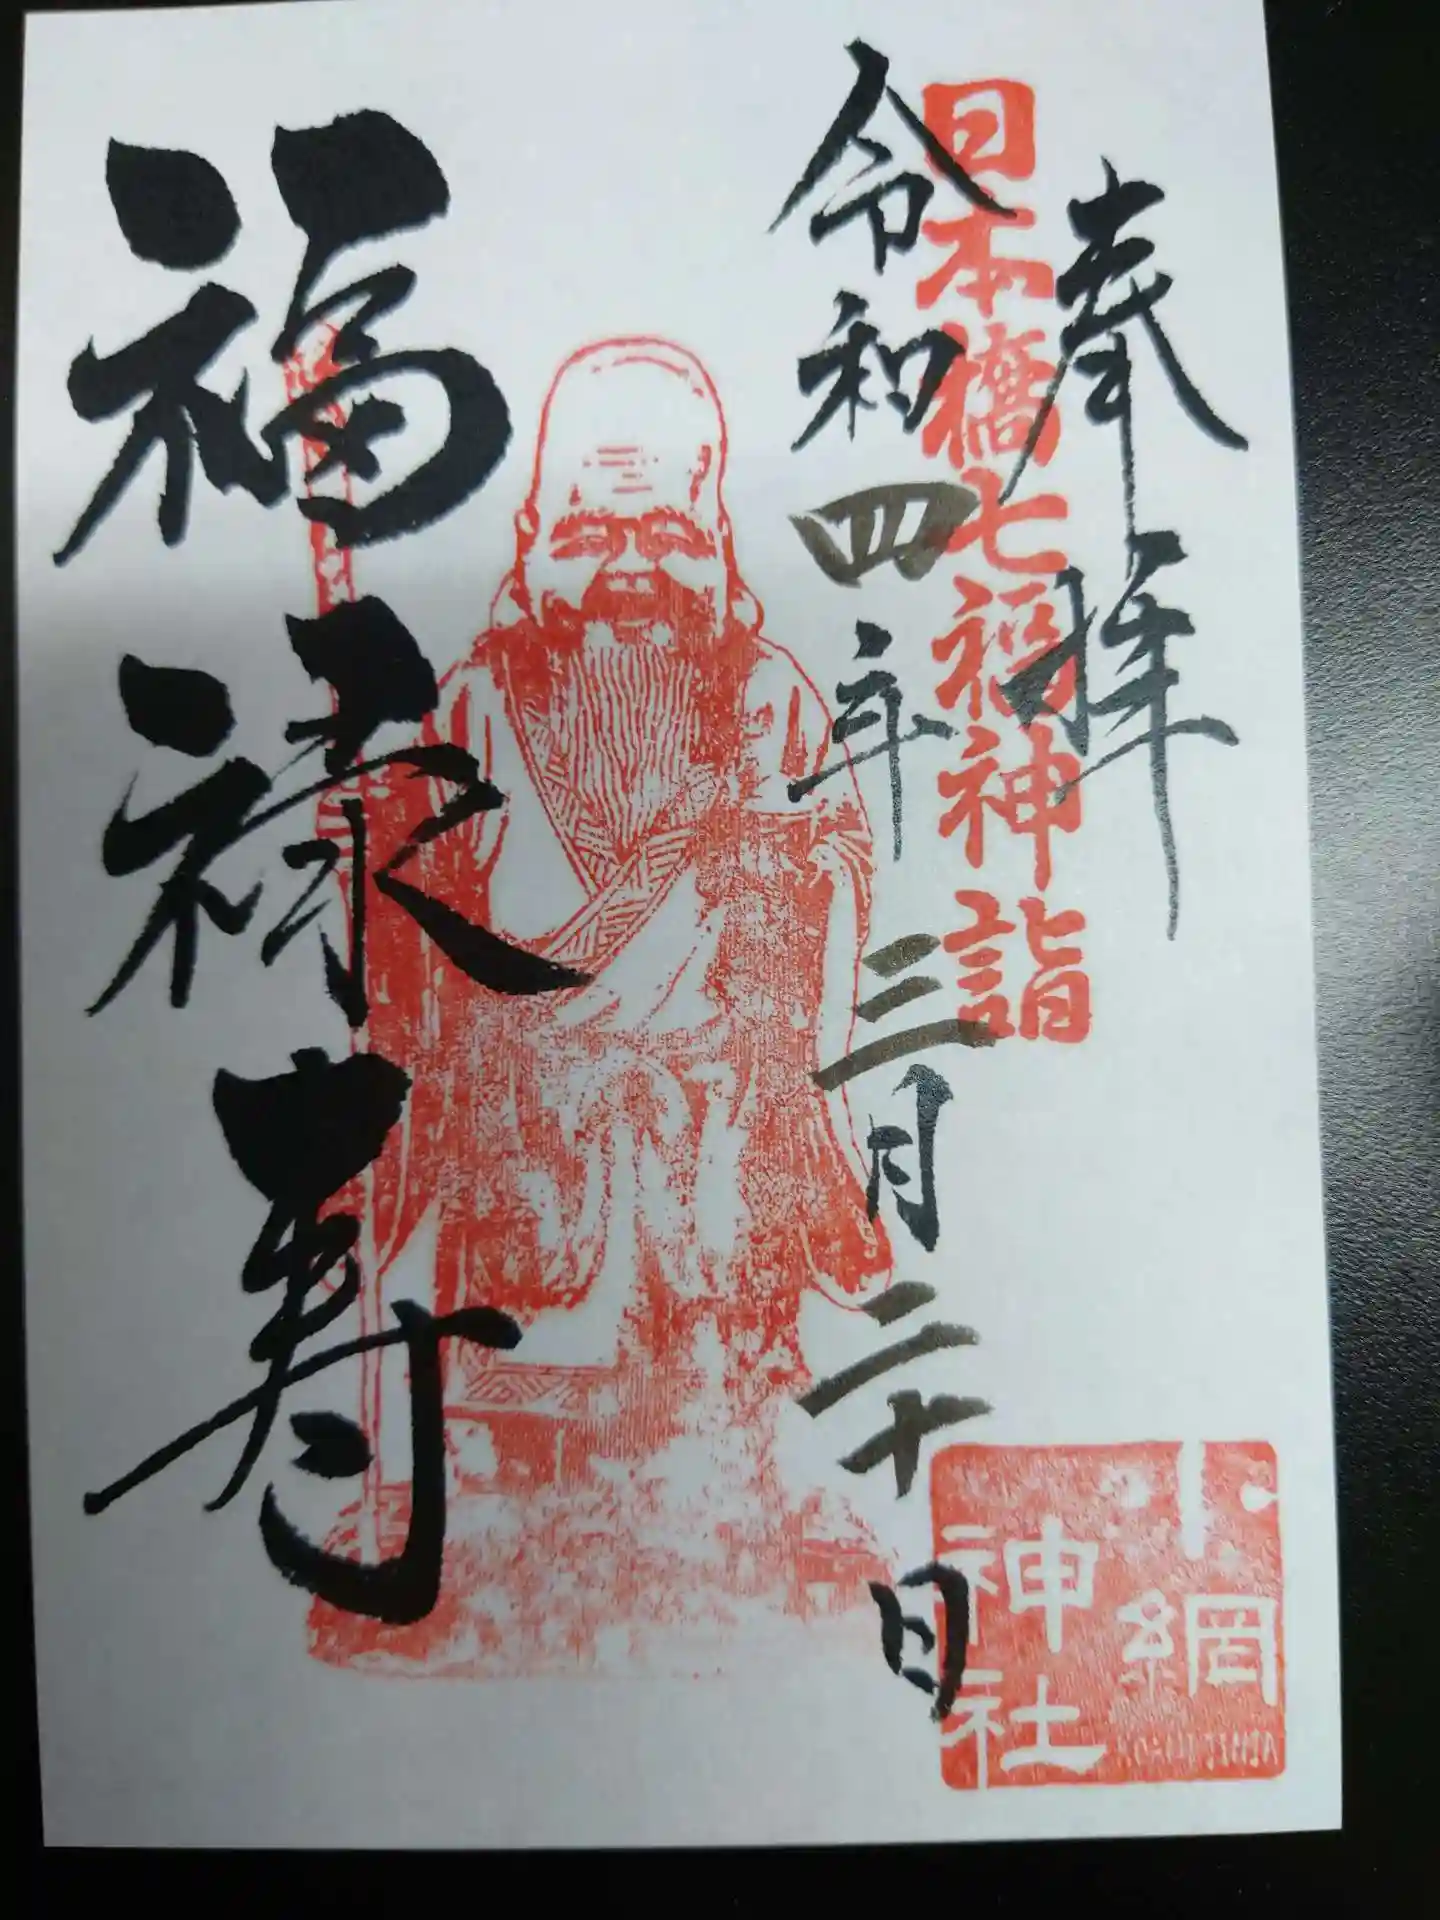 奉拝
日本橋七福神詣
令和四年三月二十日
福禄寿
小網
神社
KOAMI JINJA